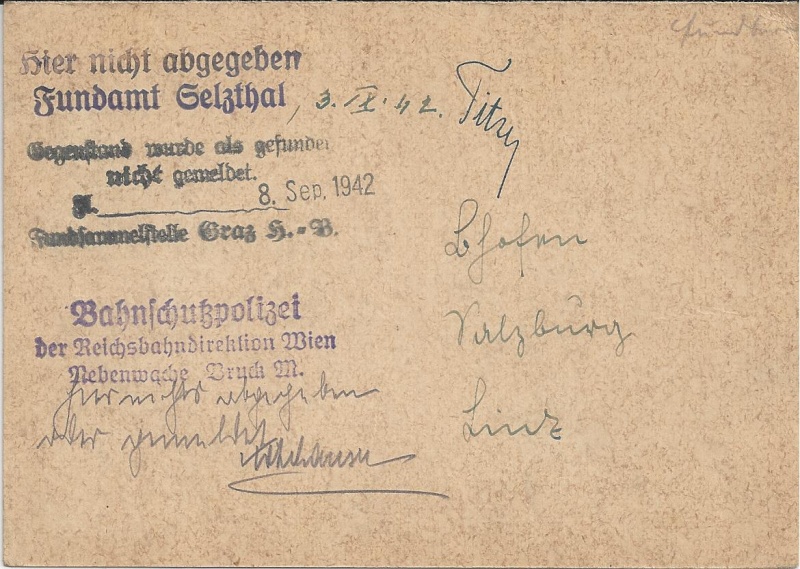 Hier nicht abgegeben
Fundamt Selzthal, 3. IX. 42.
Gegenstand wurde als gefunden
nicht gemeldet.
8. Sep. 1942
Fundsammelstelle Graz H.=B.
Bhofen
Salzburg
Linz
Bahnschutzpolizei
der Reichsbahndirektion Wien
Nebenwache Bruck M.
hier nichts abgegeben
oder gemeldet